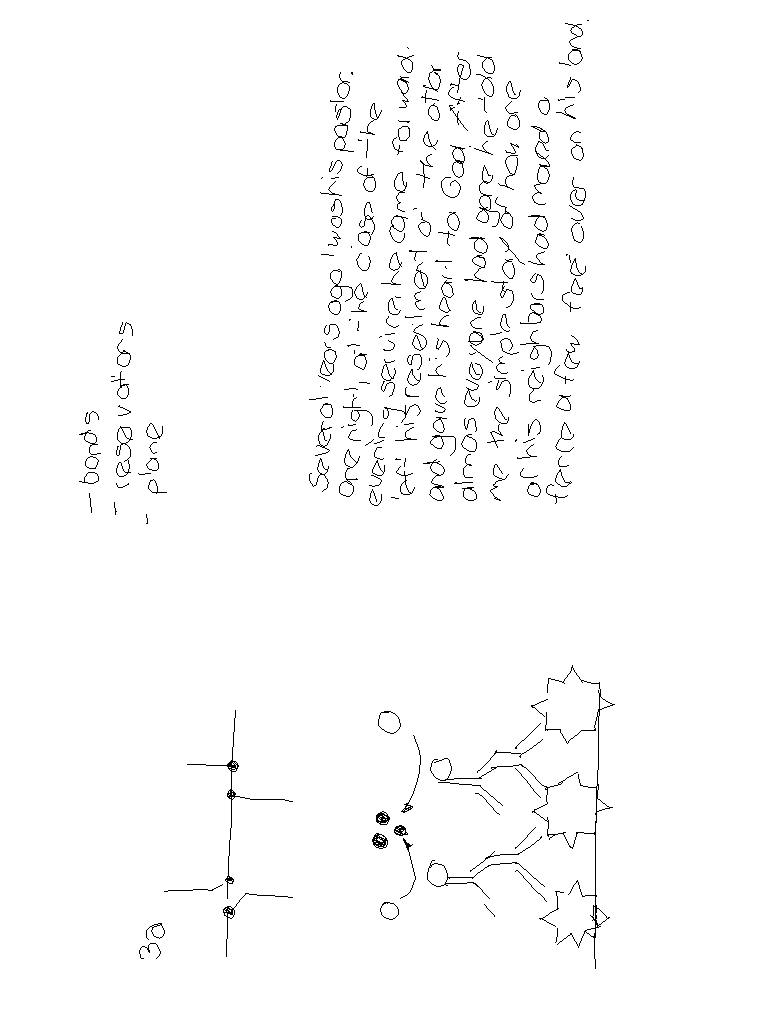 3a
- bonds
- reservations
- plane
Several years ago I was his pastor.
one night, at the close of the
evening service he came forward.
left his resentment at the altar
and gave his heart to God. After
almost everyone had gone he told
me the simple story of how one
of his neighbors had moved a
fence a few feet over on his land.